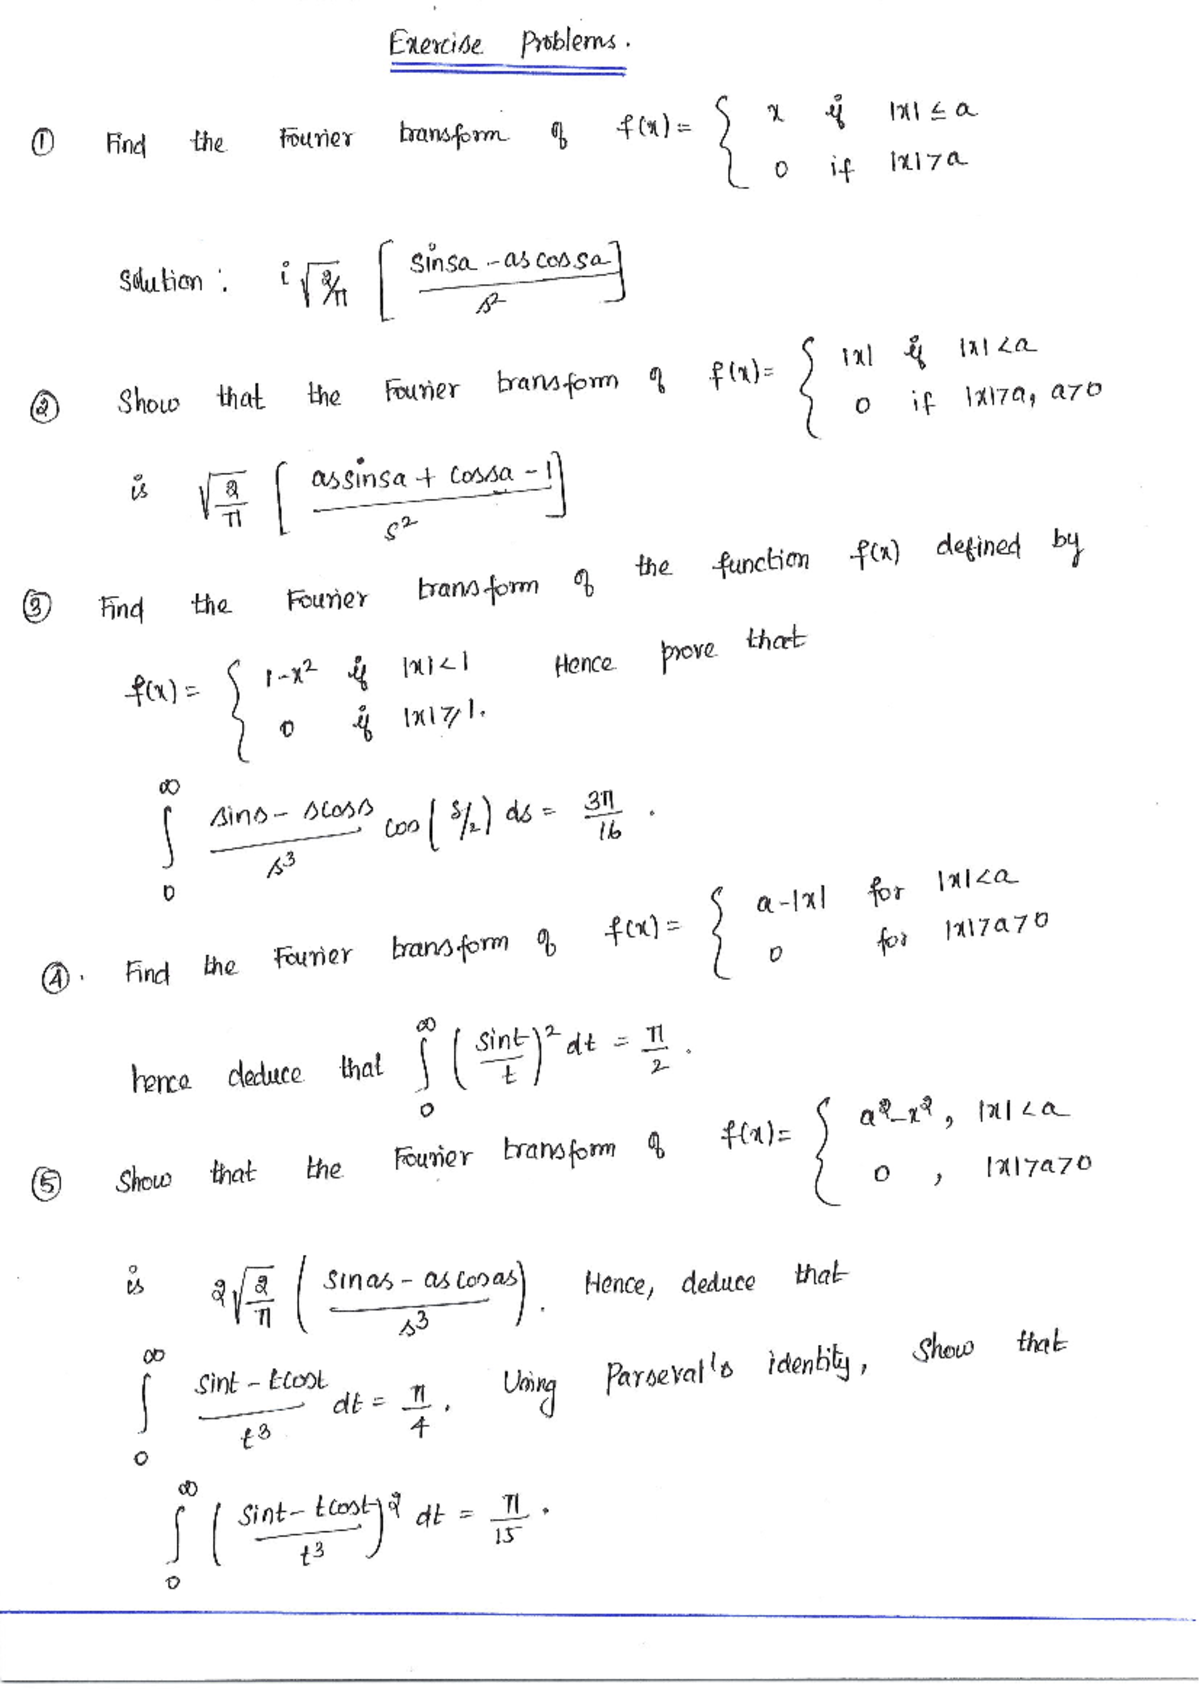 Exercise Problems.
① Find the Fourier transform of f(x) = { x if |x| ≤ a
0 if |x| > a
Solution : i √2/π [ sinsa - as cossa / s² ]
② Show that the Fourier transform of f(x) = { |x| if |x| < a
0 if |x| > a, a > 0
is √2/π [ as sinsa + cossa - 1 / s² ]
③ Find the Fourier transform of the function f(x) defined by
f(x) = { 1 - x² if |x| < 1 Hence prove that
0 if |x| ≥ 1.
∫₀^∞ sins - scoss / s³ cos (s/2) ds = 3π/16 .
④. Find the Fourier transform of f(x) = { a - |x| for |x| < a
0 for |x| > a > 0
hence deduce that ∫₀^∞ ( sint / t )² dt = π/2 .
⑤ Show that the Fourier transform of f(x) = { a² - x² , |x| < a
0 , |x| > a > 0
is 2 √2/π ( sinas - as cosas / s³ ) . Hence, deduce that
∫₀^∞ sint - tcost / t³ dt = π/4 . Using Parseval's identity, show that
∫₀^∞ ( sint - tcost / t³ )² dt = π/15 .